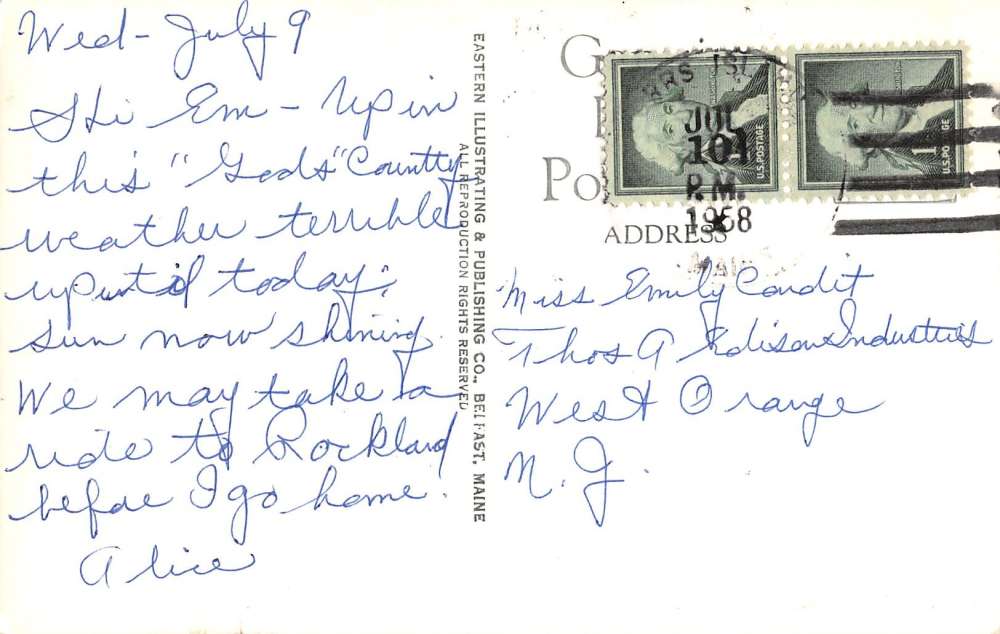 Wed - July 9
Hi Em - Up in
this "Gods" Country
weather terrible
up until today;
sun now shining.
We may take a
ride to Rockland
before I go home.
Alice
EASTERN ILLUSTRATING & PUBLISHING CO., BELFAST, MAINE
ALL REPRODUCTION RIGHTS RESERVED
JUL
10
P.M.
1958
U.S. POSTAGE
1¢ U.S. POSTAGE
ADDRESS
Miss Emily Condit
Thos A Edison Industries
West Orange
N. J.